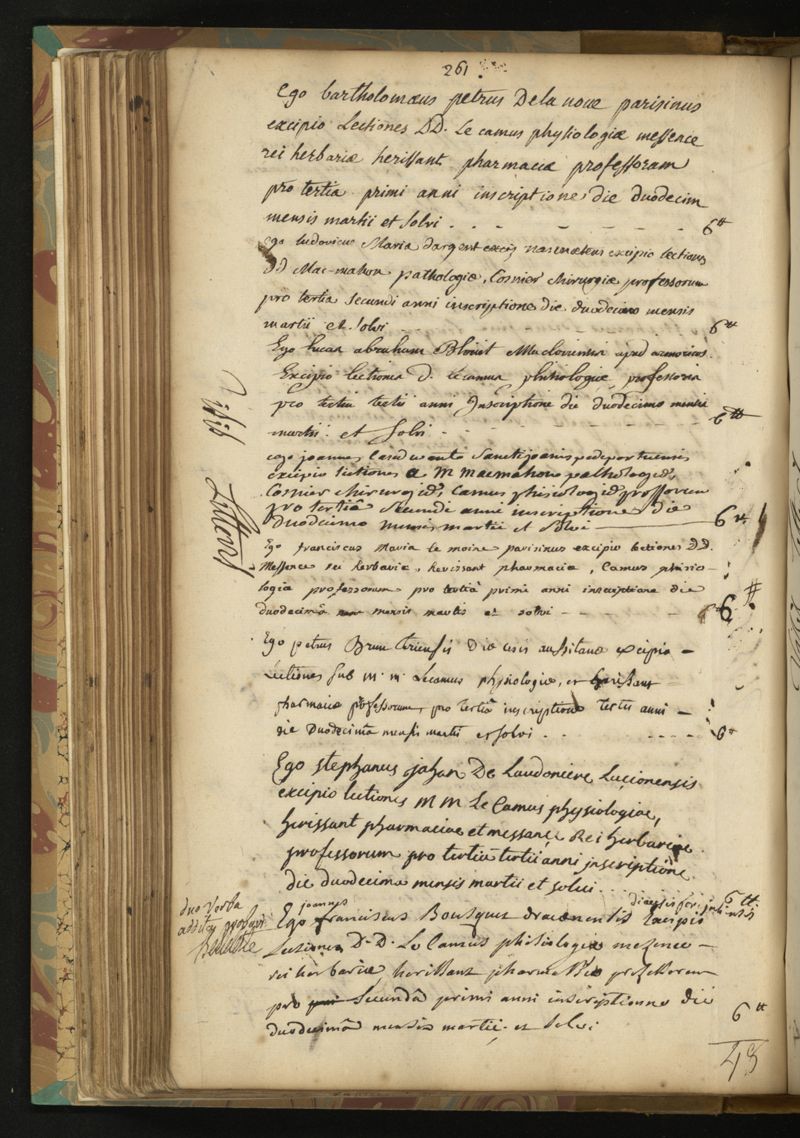 261
Ego bartholomæus petrus Dela noue parisinus
excipio Lectiones DD. Le camus physiologiæ messence
rei herbariæ herissant pharmaciæ professorum
pro tertia primi anni inscriptione die duodecim
mensis martii et solvi . . . 6tt
ego ludovicus Maria dargent excipio lectiones
DD Mac-mahon pathologiæ, Cosnier chirurgiæ professorum
pro tertia secundi anni inscriptione die duodecimo mensis
martii et solvi 6tt
Ego lucas abraham Blouit Macloviensis apud armoricos
Excipio lectiones D. le camus phisiologiæ professoris
pro tertia tertii anni Inscriptione die duodecimo mensis
martii et solvi 6tt
ego joannes sancti joannis pedeportuensis
excipio lectiones a M macmahon pathologiæ,
Cosnier chirurgiæ, Camus phisiologiæ professorum
pro tertiâ secundi anni inscriptione die
duodecimo mensis martii et solvi 6tt
Ego franciscus Maria le moine parisinus excipio lectiones DD.
Messence rei herbariæ, herissant pharmaciæ, Camus phisio-
logiæ professorum pro tertiâ primi anni inscriptione die
duodecimâ mensis martis et solvi 6tt
Ego petrus Brun excipio
Lectiones sub m. m. Lecamus physiologiæ, et herissant
pharmaciæ professorum, pro tertiâ inscriptione tertii anni
die Duodecima mensis martii et solvi . . 6tt
Ego stephanus jahan De Laudoniere Lucionensis
excipio lectiones M M Le Camus physiologiae,
herissant pharmaciae et messance Rei herbariae
professorum pro tertia tertii anni inscriptione
die duodecima mensis martii et solui . . . 6tt
duo verba
addita
joannes
diœcesis forojuliensis
Ego franciscus Bousquet dracenensis Excipio
Lectiones D.D. Le Camus phisiologiæ mesence
rei herbariæ, herissant pharmaciæ professorum
pro secundâ primi anni inscriptionne die
duodecimâ mensis martii et solvi 6tt
48